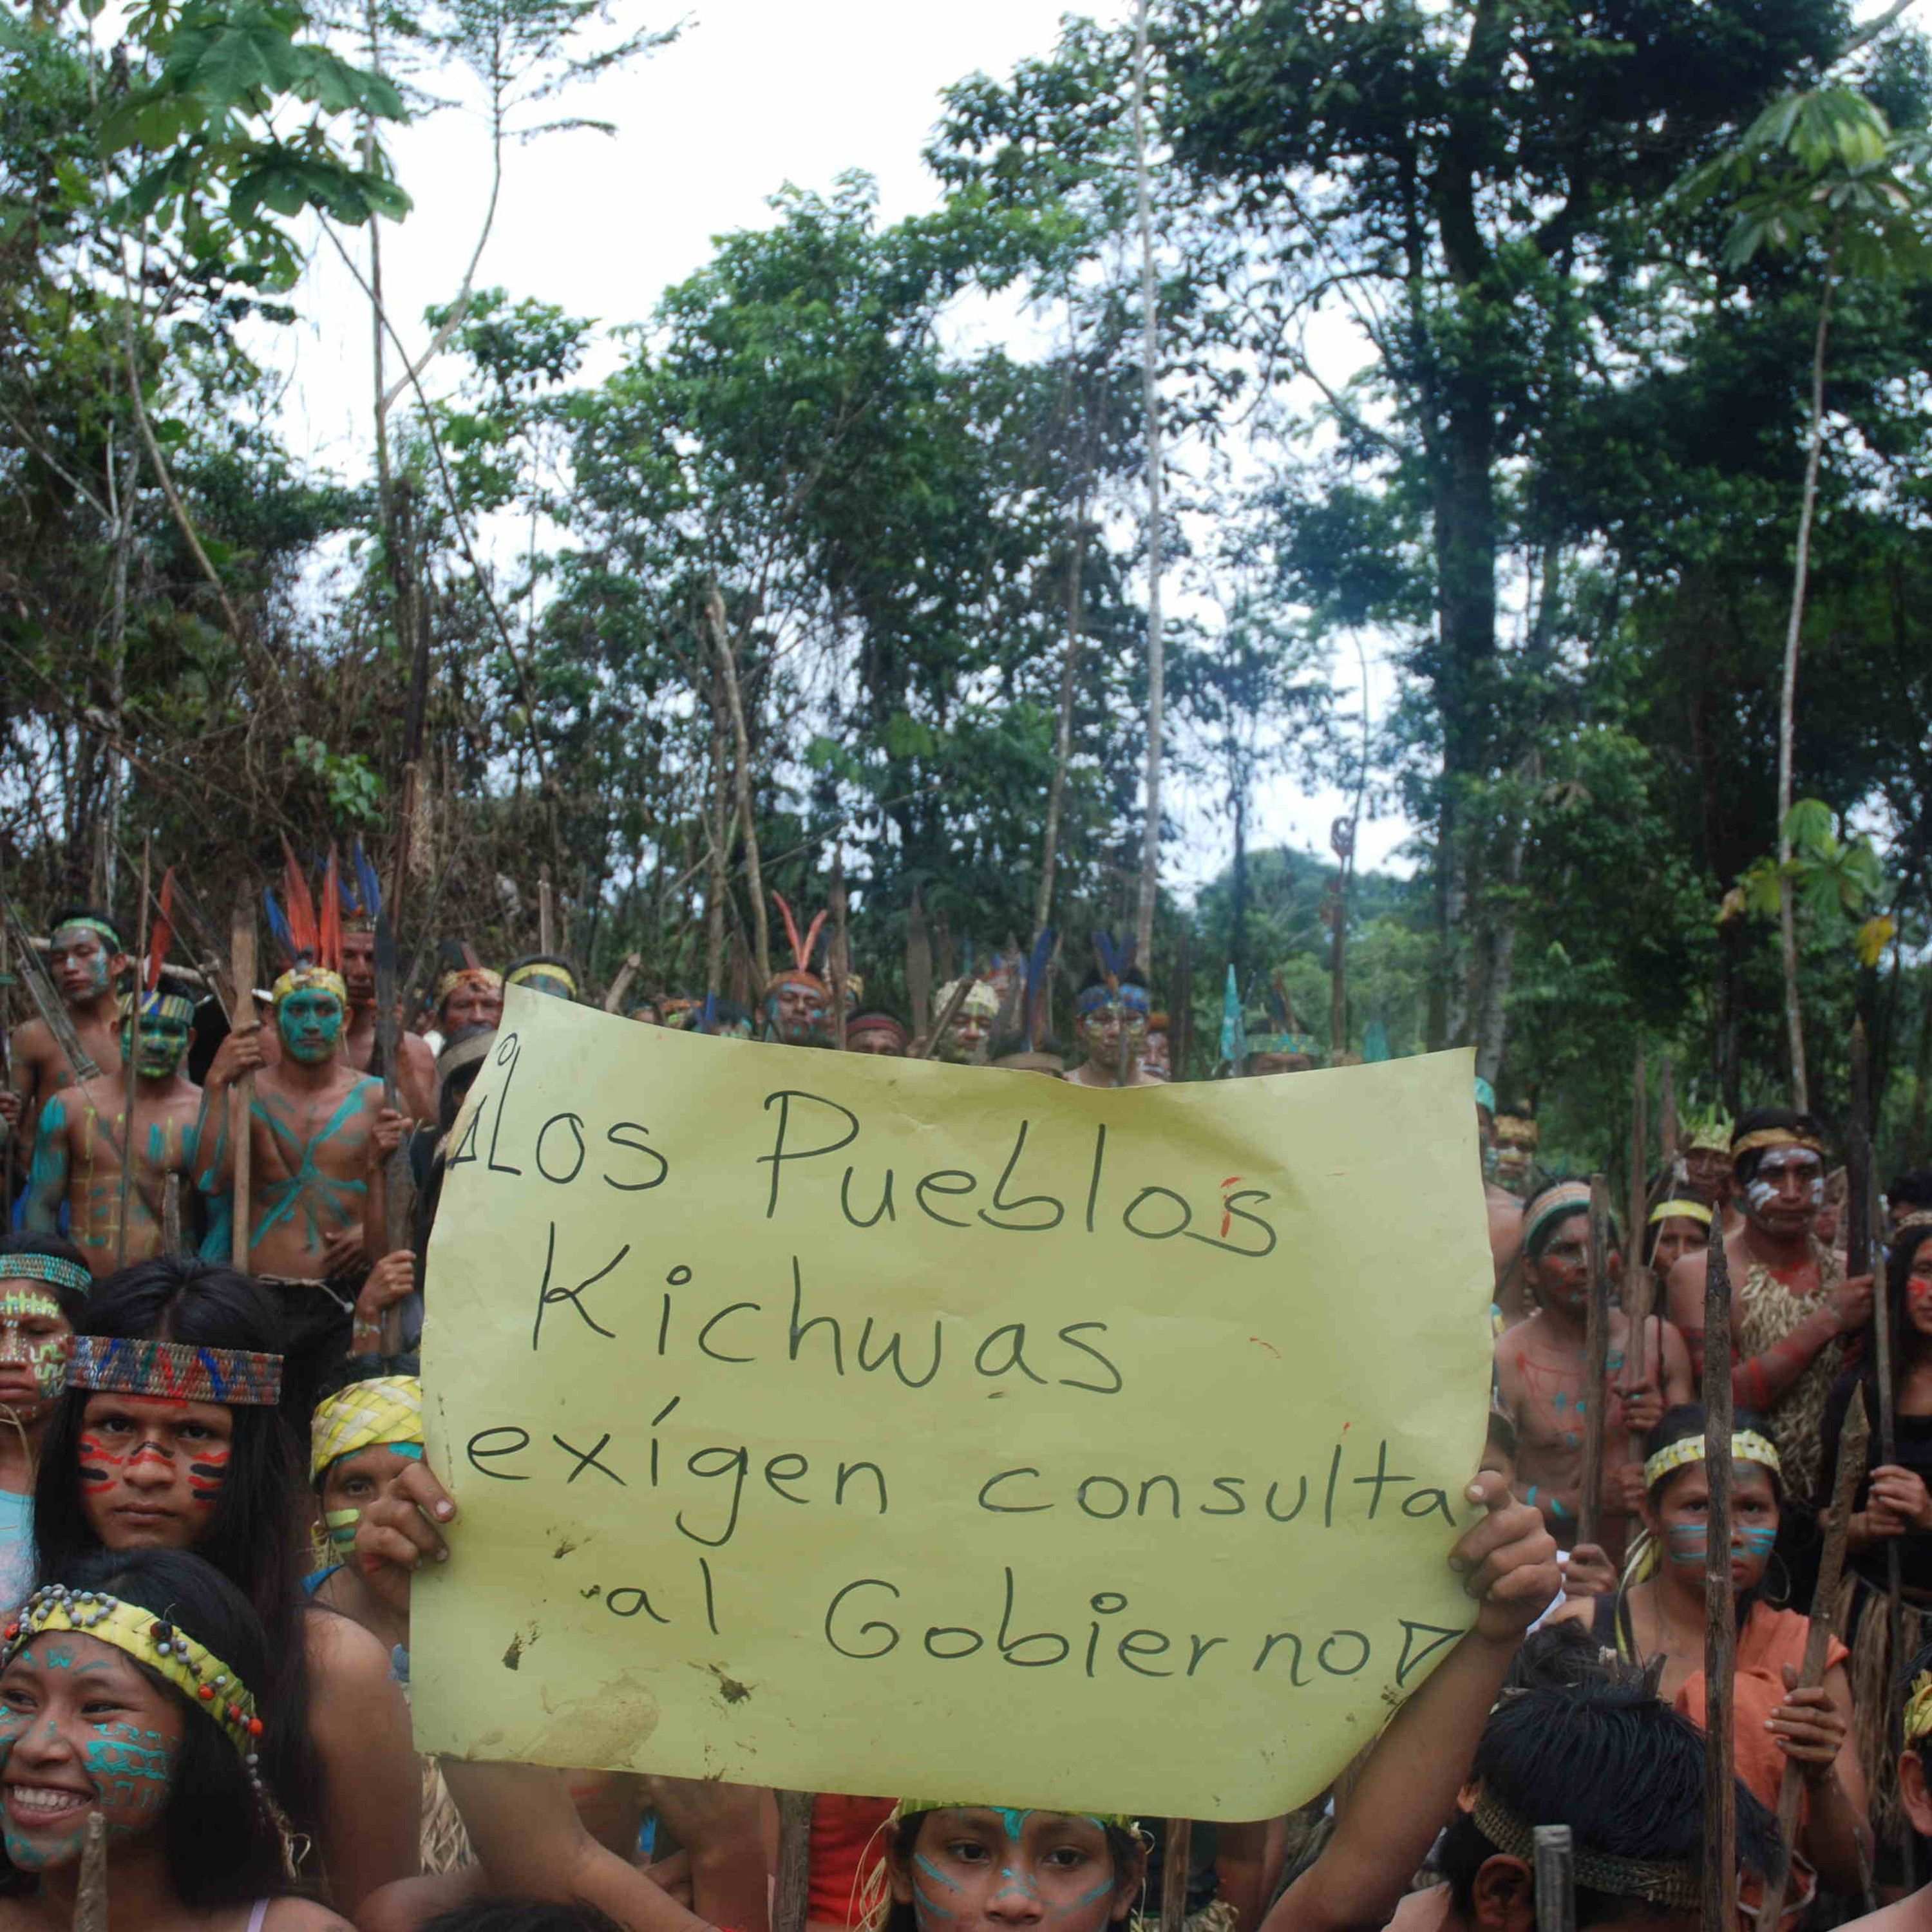 ¡Los Pueblos
Kichwas
exígen consulta
al Gobierno!